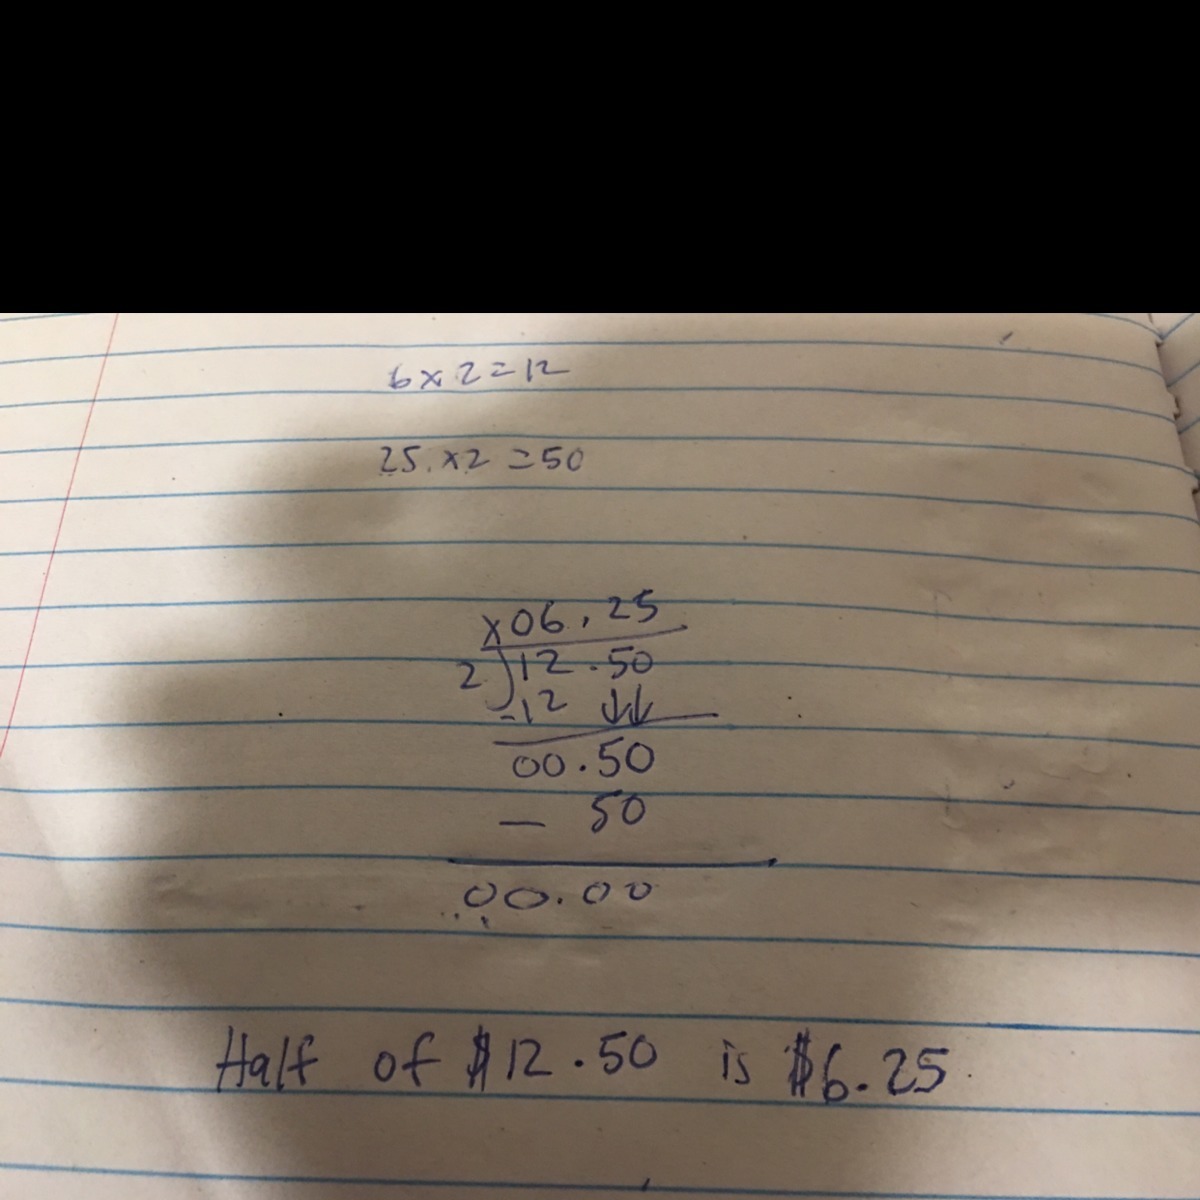 6 x 2 = 12
25 . x 2 = 50
x06.25
2)12.50
-12 ↓↓
00.50
- 50
00.00
Half of $12.50 is $6.25